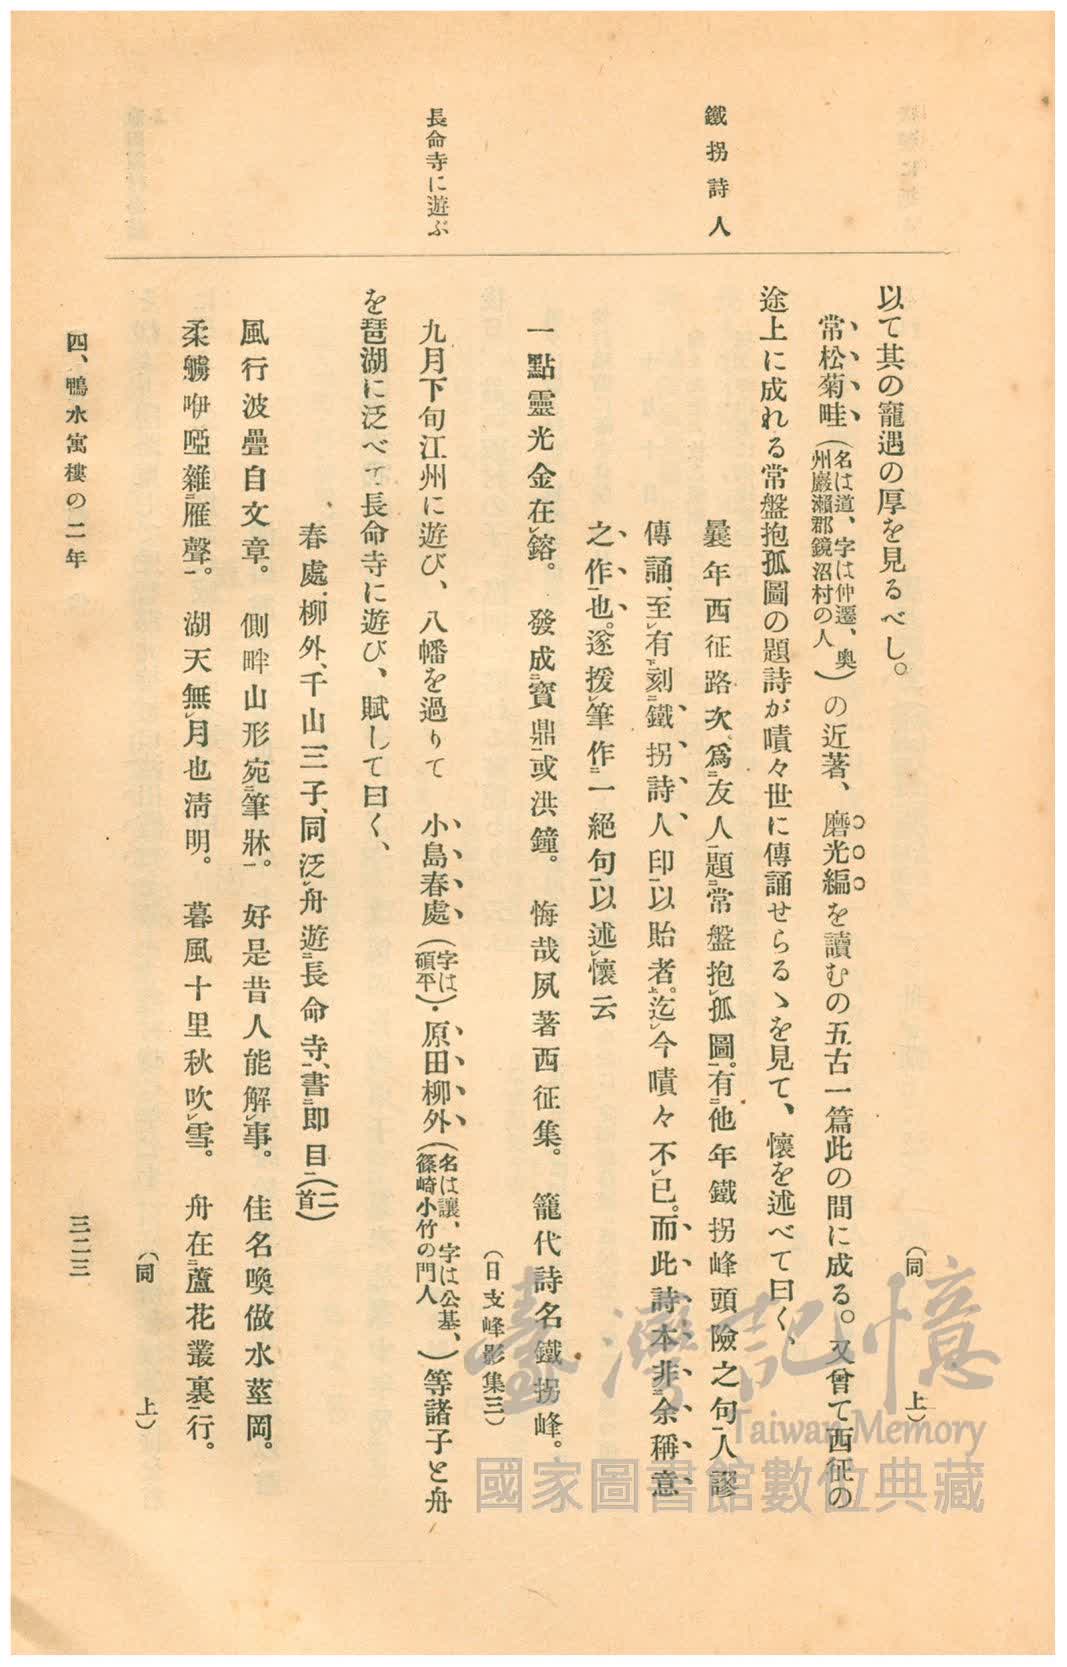 鐵拐詩人
長命寺に遊ぶ
以て其の寵遇の厚を見るべし。
(同上)
常松菊畦(名は道、字は仲遷、奥州巖瀨郡鏡沼村の人)の近著、磨光編を讀むの五古一篇此の間に成る。又曾て西征の
途上に成れる常盤抱孤圖の題詩が嘖々世に傳誦せらるゝを見て、懷を述べて曰く、
曩年西征路次、爲㆓友人㆒題㆓常盤抱㆑孤圖㆒。有㆓他年鐵拐峰頭險之句㆒、人謬
傳誦、至㆑有㆘刻㆓鐵拐詩人印㆒以貽者㆖。迄㆑今嘖々不㆑已。而此詩本非㆓余稱意
之作㆒也。遂援㆑筆作㆓一絕句㆒以述㆑懷云
一點靈光金在㆑鎔。 發成㆓寶鼎㆒或洪鐘。 悔哉夙著西征集。 籠代詩名鐵拐峰。
(日支峰影集三)
九月下旬江州に遊び、八幡を過りて 小島春處(字は碩平)・原田柳外(名は讓、字は公基、篠崎小竹の門人)等諸子と舟
を琵湖に泛べて長命寺に遊び、賦して曰く、
春處、柳外、千山三子、同泛㆑舟遊㆓長命寺㆒、書㆓即目㆒(二首)
風行波疊自文章。 側畔山形宛㆓筆牀㆒。 好是昔人能解㆑事。 佳名喚做水莖岡。
柔艣咿啞雜㆓雁聲㆒。 湖天無㆑月也淸明。 暮風十里秋吹㆑雪。 舟在㆓蘆花叢裏㆒行。
(同上)
四、鴨水寓樓の二年
三二三
臺灣記憶
Taiwan Memory
國家圖書館數位典藏